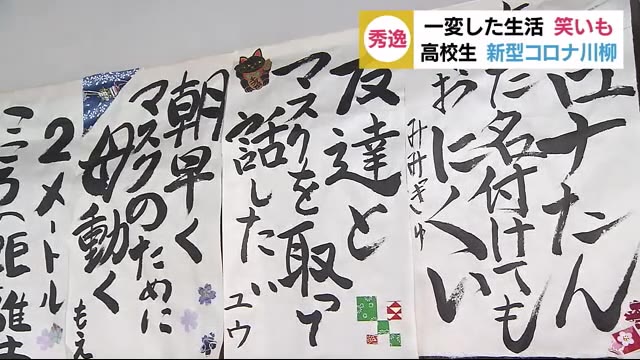 秀逸
一変した生活 笑いも
高校生 新型コロナ川柳
ロナたん
た名付けても
おにくい
みみきゅ
友達と
マスクを取って
話したい
ユウ
朝早く
マスクのために
母動く
もえ
2メートル
こころの距離は